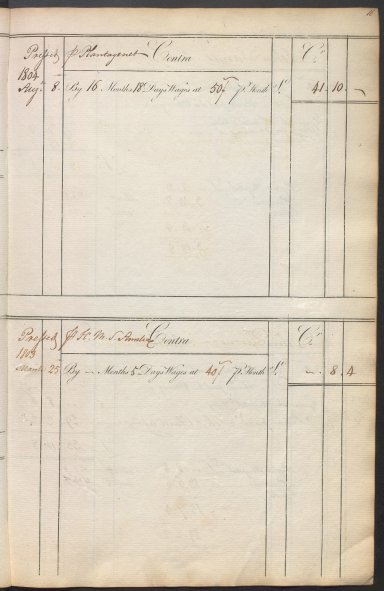 Pressed p Plantagenet Contra Cr
1804
Augt 8 By 16 Months 18 Days Wages at 50/ pr Month £ 41 10 -
Pressed p H. M. S. Contra Cr
1803
March 25 By - Months 5 Days Wages at 40/ pr Month £ - 8 4